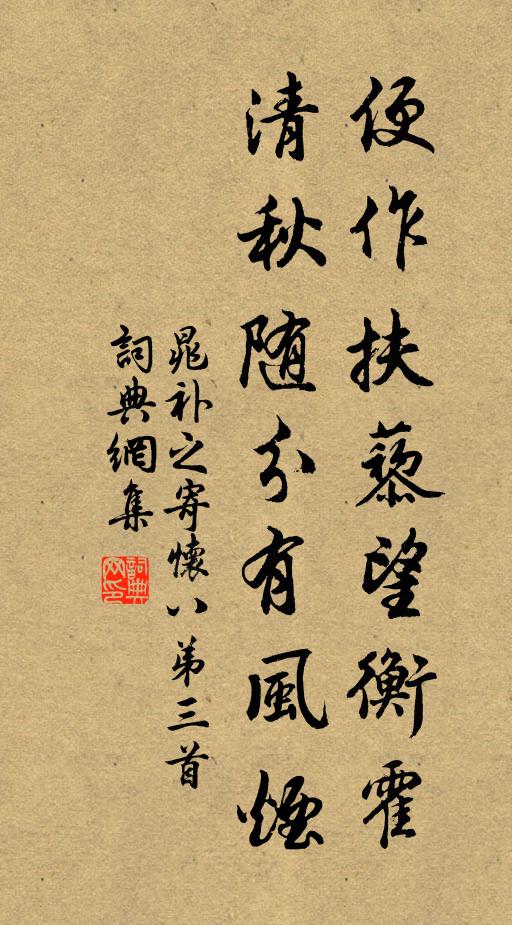 便作扶藜望衡霍
清秋随分有風煙
晁补之寄懷八弟三首
詞典網集
詞典
网印